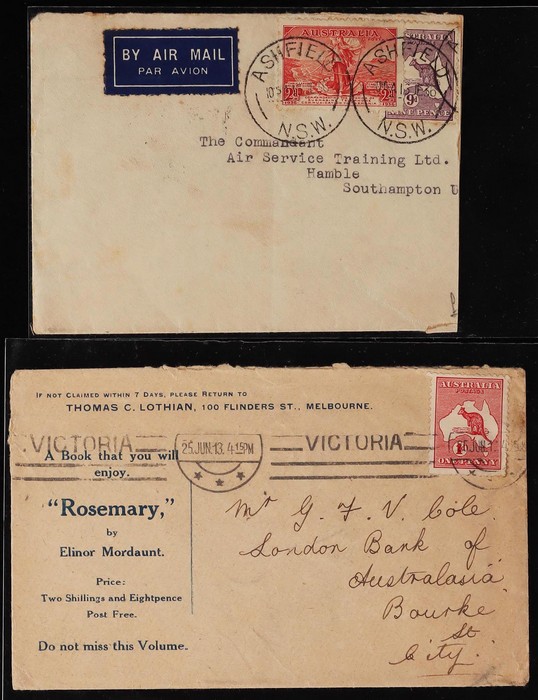 BY AIR MAIL
PAR AVION
AUSTRALIA
2d 2d
9d
NINE PENCE
ASHFIELD
N.S.W.
ASHFIELD
N.S.W.
The Commandant
Air Service Training Ltd.
Hamble
Southampton U
IF NOT CLAIMED WITHIN 7 DAYS, PLEASE RETURN TO
THOMAS C. LOTHIAN, 100 FLINDERS ST., MELBOURNE.
AUSTRALIA
POSTAGE
1d
ONE PENNY
VICTORIA
25.JUN.13. 4.15PM
VICTORIA
25.JUN.1
A Book that you will
enjoy.
"Rosemary,"
by
Elinor Mordaunt.
Price:
Two Shillings and Eightpence
Post Free.
Do not miss this Volume.
Mr G. F. V. Cole.
London Bank of
Australasia
Bourke
St
City.